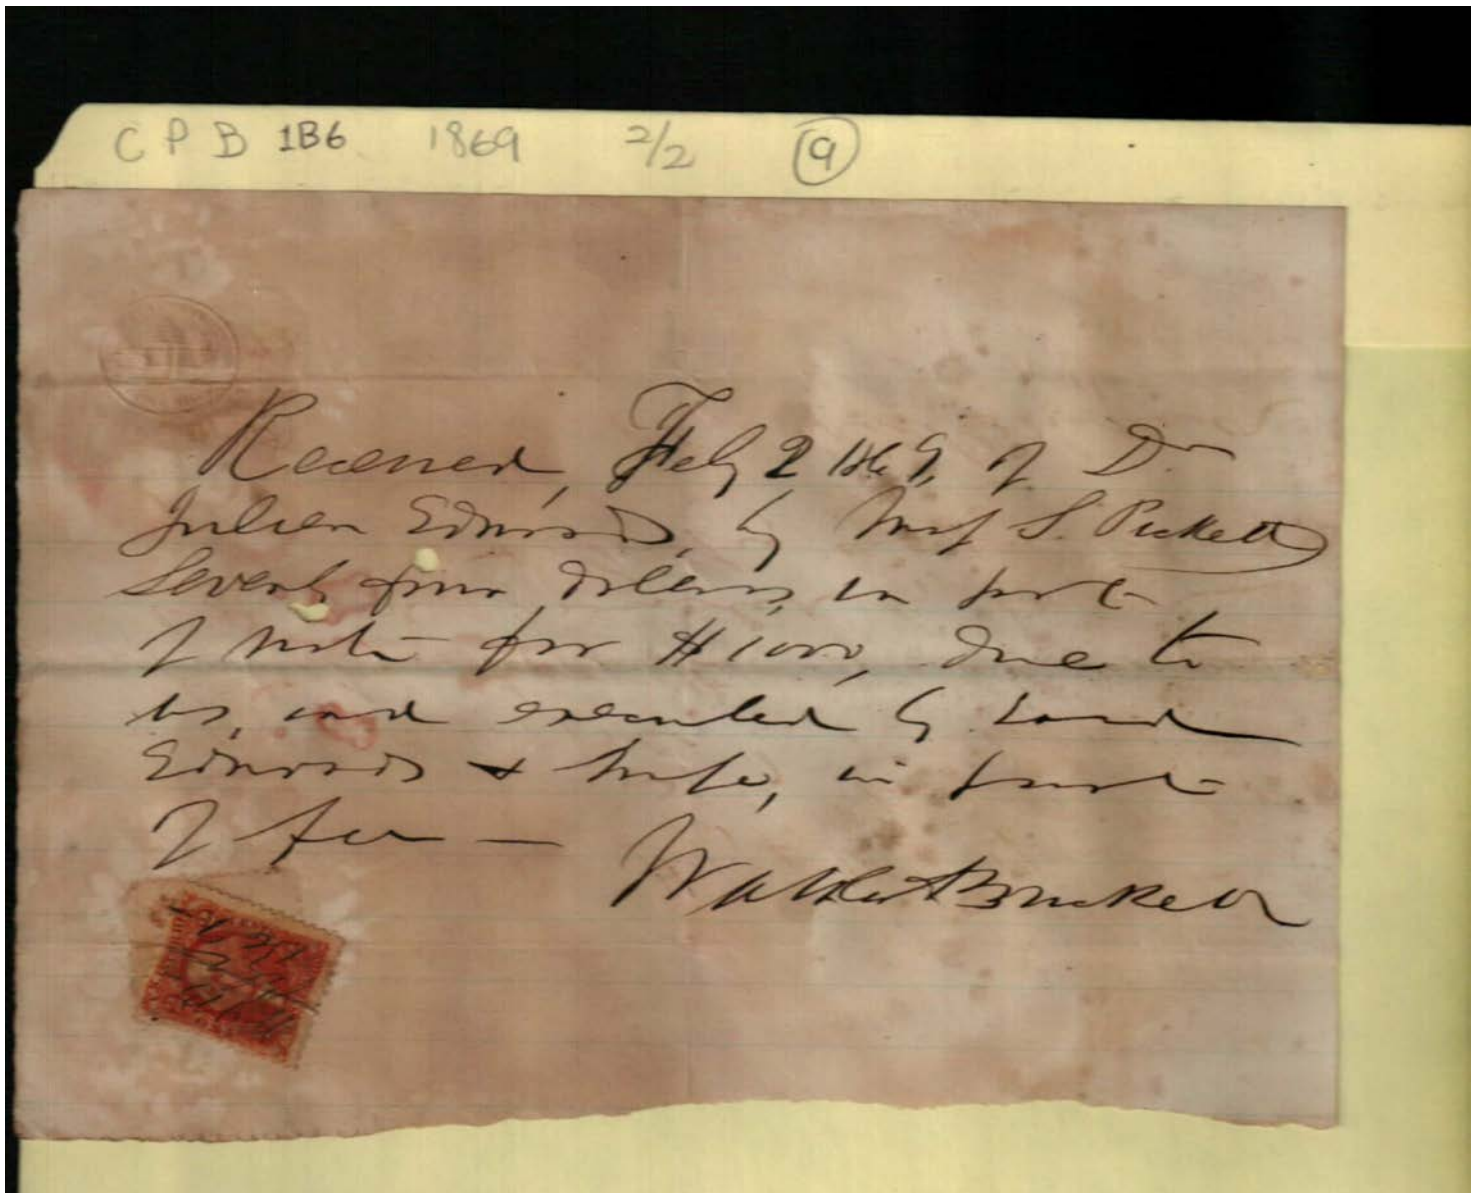 C P B 1B6 1869 2/2 9
Received, Feby 2 1869, of Dr
Julien Edwards, by S. Pickett
Seventy four dollars, in part
of note for $1000, due to
us, and executed by said
Edwards & wife, in part
of fee —